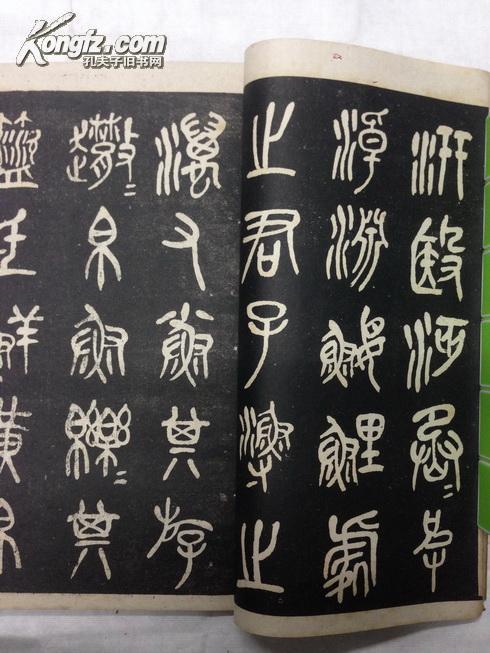 Kongfz.com
孔夫子旧书网
汧殹沔丞=皮
淖淵鰋鯉處
之君子漁=之
澫又小魚其斿
趩=帛魚皪=其
氐鮮黃帛